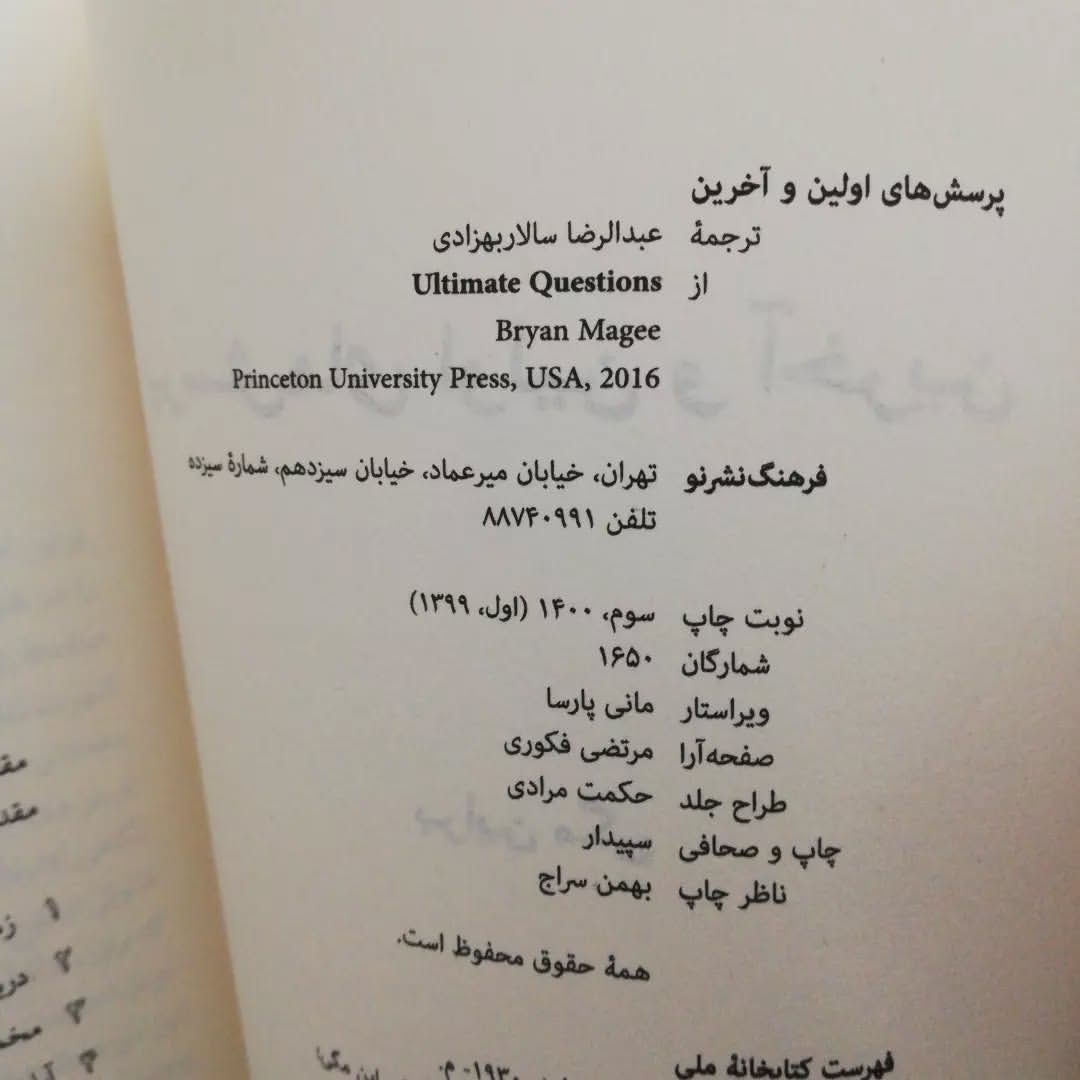 پرسش‌های اولین و آخرین
ترجمهٔ عبدالرضا سالاربهزادی
از Ultimate Questions
Bryan Magee
Princeton University Press, USA, 2016
فرهنگ‌نشرنو تهران، خیابان میرعماد، خیابان سیزدهم، شمارهٔ سیزده
تلفن ۸۸۷۴۰۹۹۱
نوبت چاپ سوم، ۱۴۰۰ (اول، ۱۳۹۹)
شمارگان ۱۶۵۰
ویراستار مانی پارسا
صفحه‌آرا مرتضی فکوری
طراح جلد حکمت مرادی
چاپ و صحافی سپیدار
ناظر چاپ بهمن سراج
همهٔ حقوق محفوظ است.
فهرست کتابخانهٔ ملی
۱
۲
۳
۴